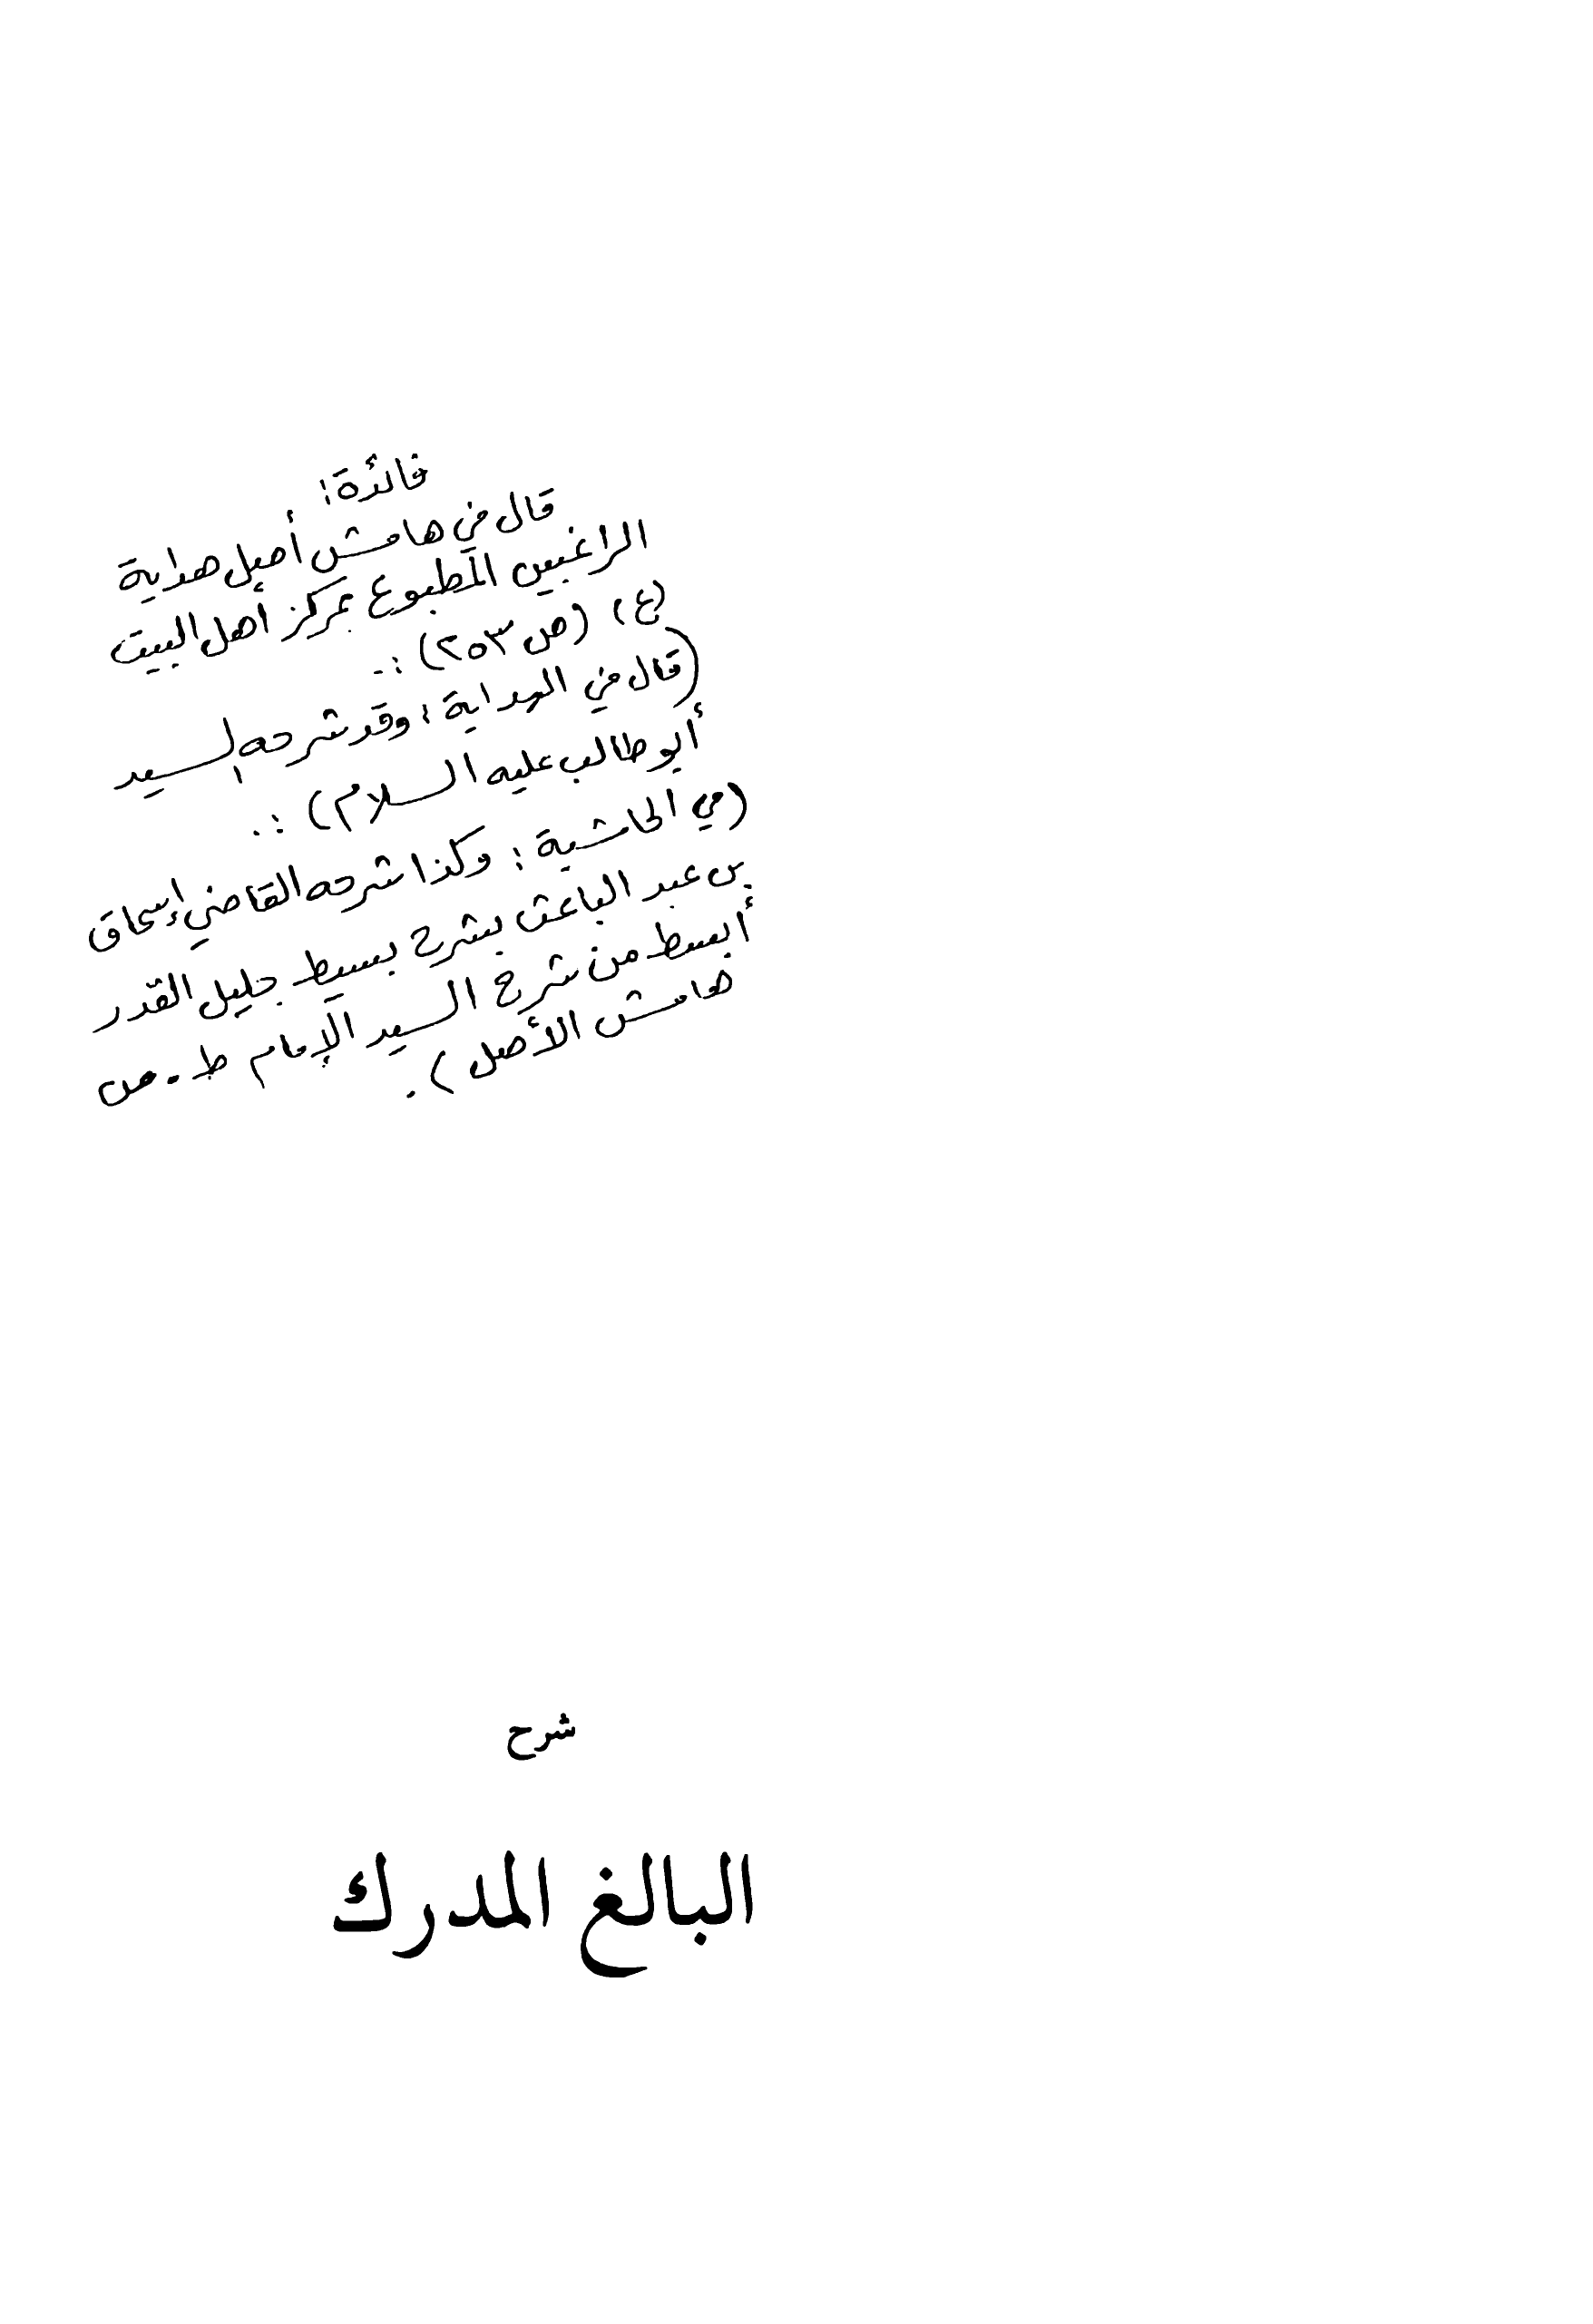 فائدة:
قال في هامش أصل هداية
الراغبين المطبوع بمركز أهل البيت
(ع) (ص ٢٥٣) :..
(قال في الهداية: وقد شرحه السيد
أبو طالب عليه السلام) :..
(في الحاشية: وكذا شرحه القاضي إسحاق
بن عبد الباعث بشرح بسيط جليل القدر
أبسط من شرح السيد الإمام ط .. من
هامش الأصل).
شرح
البالغ المدرك